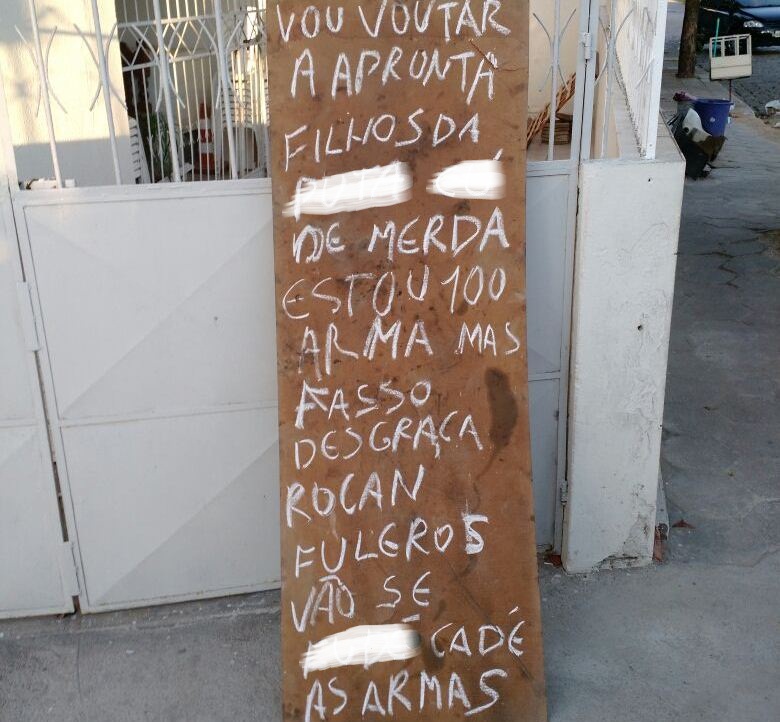 VOU VOUTAR
A APRONTA
FILHOS DA
DE MERDA
ESTOU 100
ARMA MAS
FASSO
DESGRAÇA
ROCAN
FULERO5
VÃO SE
CADÉ
AS ARMAS